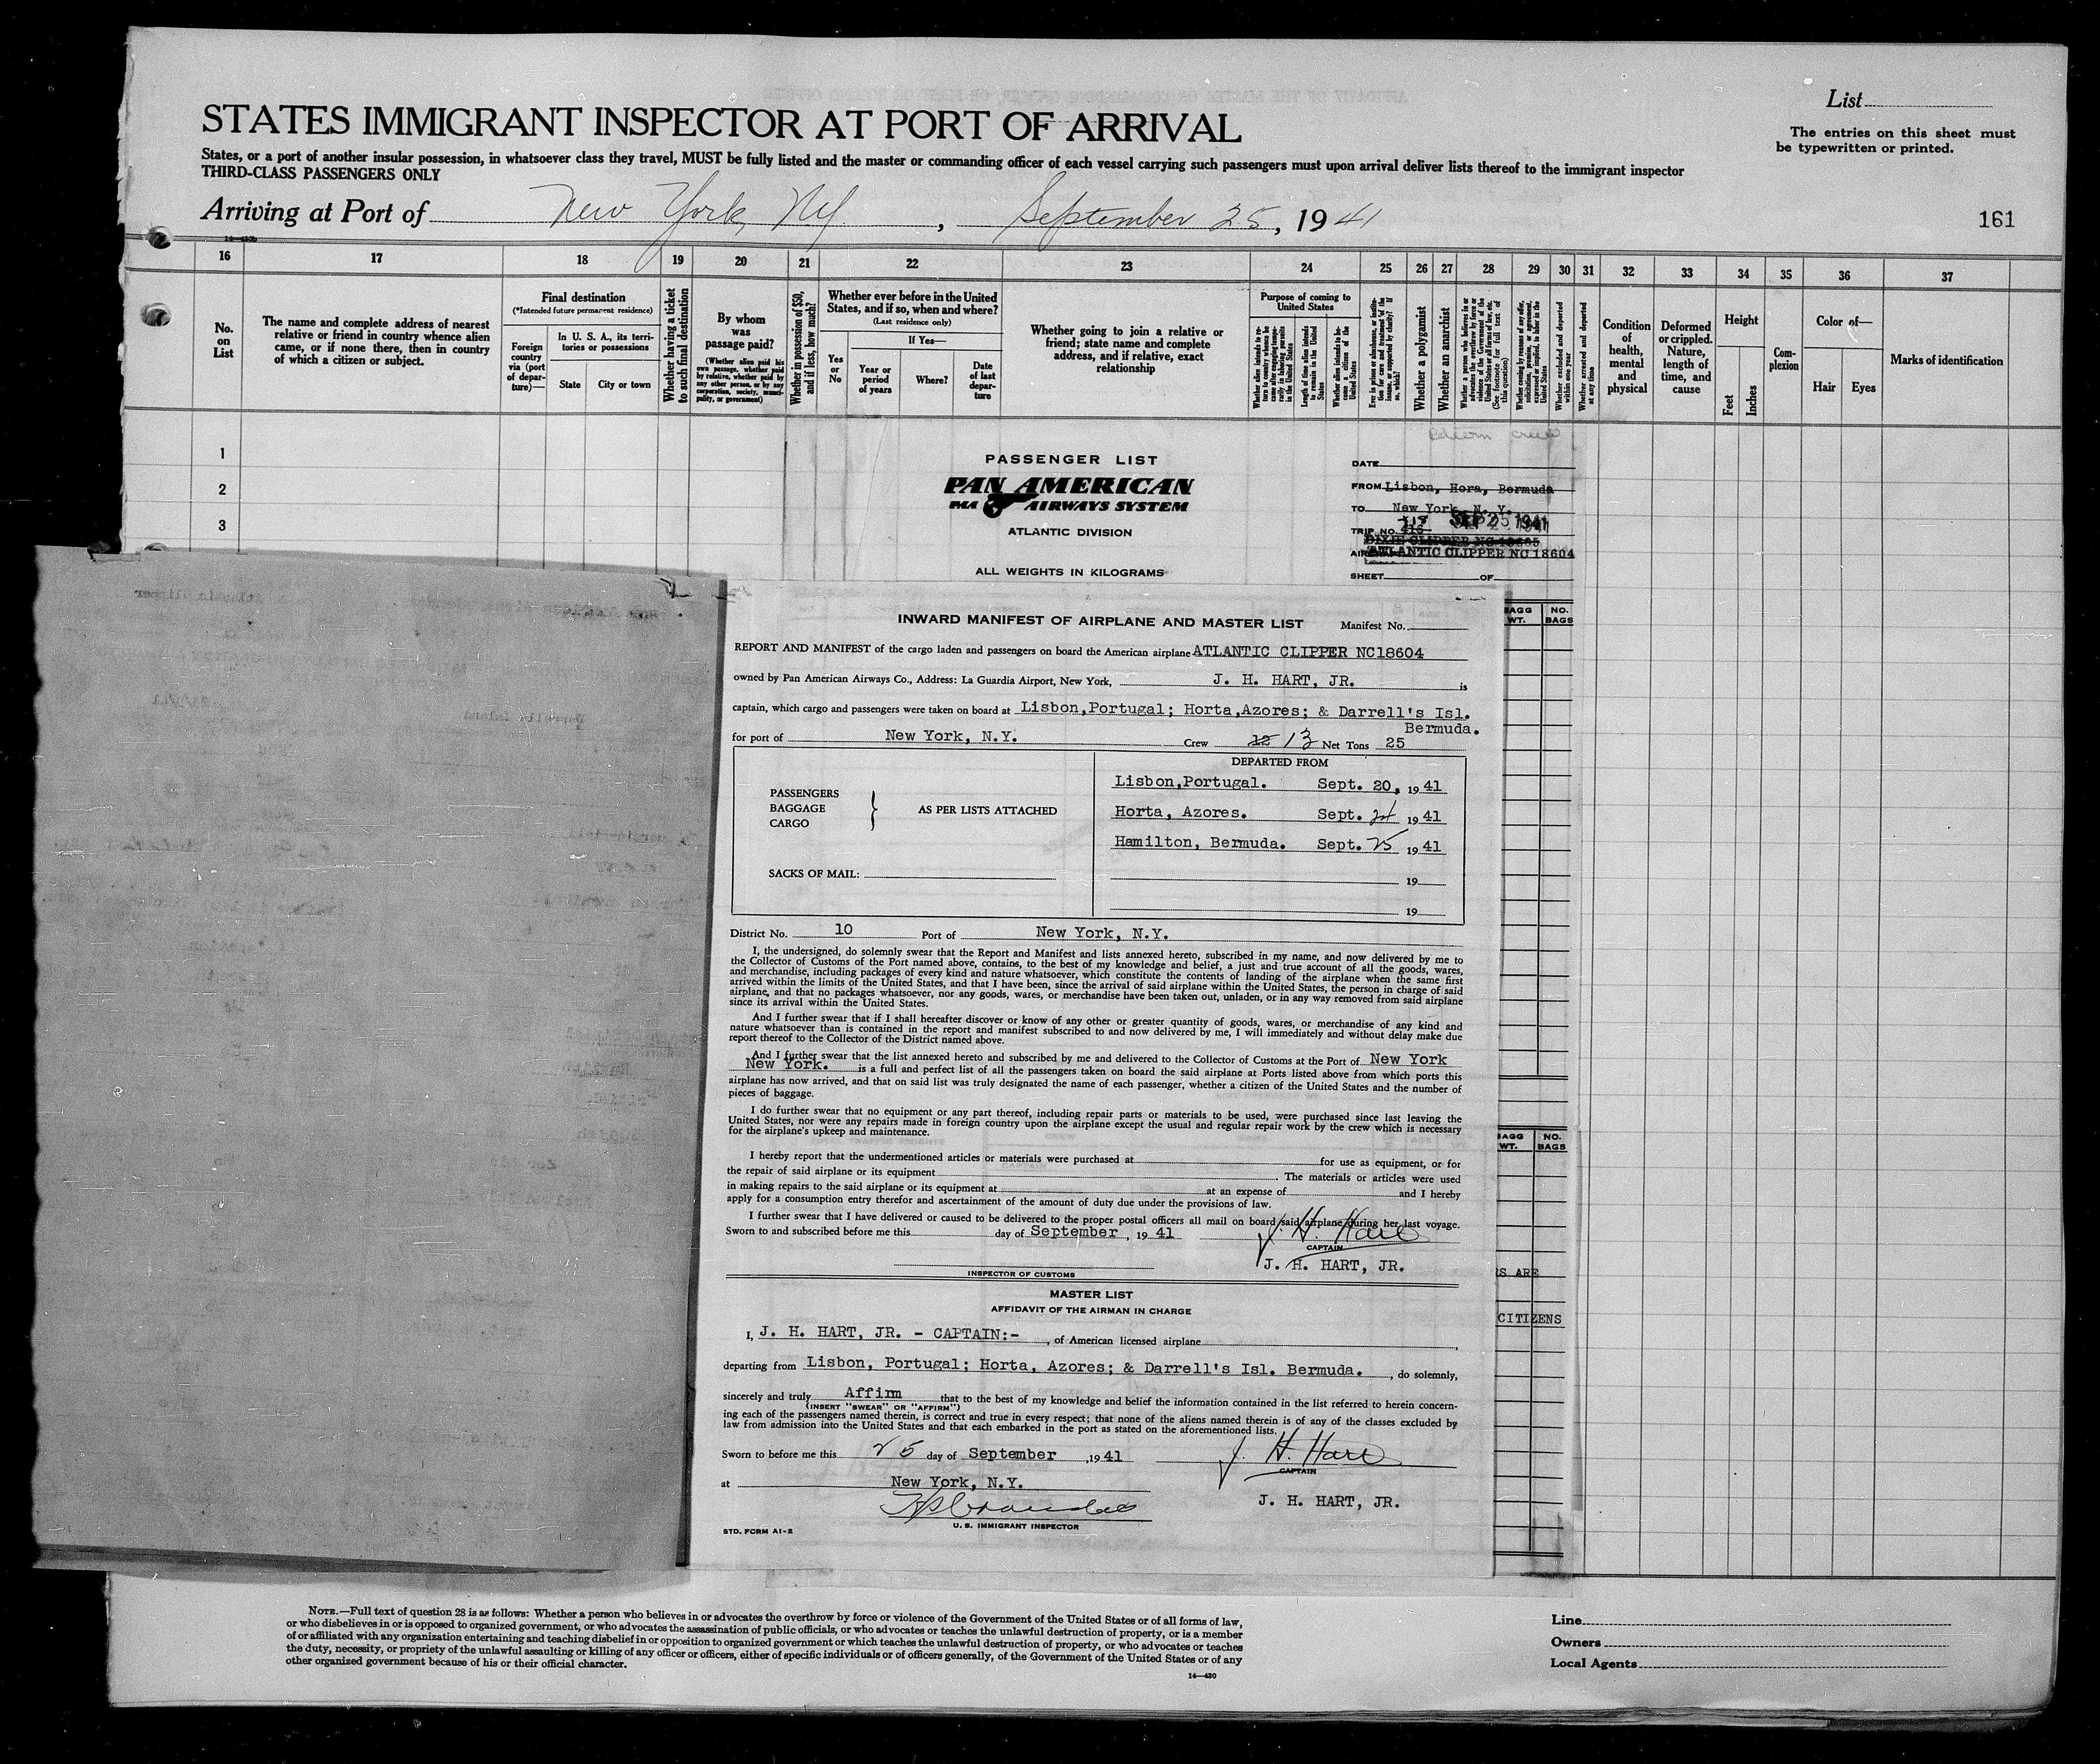 List
STATES IMMIGRANT INSPECTOR AT PORT OF ARRIVAL
The entries on this sheet must
be typewritten or printed.
States, or a port of another insular possession, in whatsoever class they travel, MUST be fully listed and the master or commanding officer of each vessel carrying such passengers must upon arrival deliver lists thereof to the immigrant inspector
THIRD-CLASS PASSENGERS ONLY
Arriving at Port of New York, NY, September 25, 1941
161
16 17 18 19 20 21 22 23 24 25 26 27 28 29 30 31 32 33 34 35 36 37
No.
on
List
The name and complete address of nearest
relative or friend in country whence alien
came, or if none there, then in country
of which a citizen or subject.
Final destination
(*Intended future permanent residence)
Foreign
country
via (port
of depar-
ture)—
In U. S. A., its terri-
tories or possessions
State
City or town
Whether having a ticket
to such final destination
By whom
was
passage paid?
(Whether alien paid his
own passage, whether paid
by relative, whether paid by
any other person, or by any
corporation, society, munici-
pality, or government)
Whether in possession of $50,
and if less, how much?
Whether ever before in the United
States, and if so, when and where?
(Last residence only)
Yes
or
No
If Yes—
Year or
period
of years
Where?
Date
of last
depar-
ture
Whether going to join a relative or
friend; state name and complete
address, and if relative, exact
relationship
Purpose of coming to
United States
Length of time alien intends
to remain in the United
States
Whether alien intends to be-
come a citizen of the
United States
Whether a polygamist
Whether an anarchist
Whether excluded and deported
within one year
Whether arrested and deported
at any time
Condition
of
health,
mental
and
physical
Deformed
or crippled.
Nature,
length of
time, and
cause
Height
Feet
Inches
Com-
plexion
Color of—
Hair
Eyes
Marks of identification
1
2
3
PASSENGER LIST
PAN AMERICAN
PAA AIRWAYS SYSTEM
ATLANTIC DIVISION
ALL WEIGHTS IN KILOGRAMS
DATE
FROM Lisbon, Hora, Bermuda
TO New York, N. Y.
TRIP NO. SEP 25 1941
DIXIE CLIPPER NC 18605
ATLANTIC CLIPPER NC 18604
SHEET OF
BAGG
WT.
NO.
BAGS
INWARD MANIFEST OF AIRPLANE AND MASTER LIST
Manifest No.
REPORT AND MANIFEST of the cargo laden and passengers on board the American airplane ATLANTIC CLIPPER NC18604
owned by Pan American Airways Co., Address: La Guardia Airport, New York, J. H. HART, JR. is
captain, which cargo and passengers were taken on board at Lisbon,Portugal; Horta,Azores; & Darrell's Isl.
Bermuda.
for port of New York, N.Y. Crew 12 13 Net Tons 25
DEPARTED FROM
PASSENGERS
BAGGAGE
CARGO
AS PER LISTS ATTACHED
Lisbon,Portugal. Sept. 20, 1941
Horta, Azores. Sept. 24 1941
Hamilton, Bermuda. Sept. 25 1941
SACKS OF MAIL:
19
19
District No. 10 Port of New York, N.Y.
I, the undersigned, do solemnly swear that the Report and Manifest and lists annexed hereto, subscribed in my name, and now delivered by me to
the Collector of Customs of the Port named above, contains, to the best of my knowledge and belief, a just and true account of all the goods, wares,
and merchandise, including packages of every kind and nature whatsoever, which constitute the contents of landing of the airplane when the same first
arrived within the limits of the United States, and that I have been, since the arrival of said airplane within the United States, the person in charge of said
airplane, and that no packages whatsoever, nor any goods, wares, or merchandise have been taken out, unladen, or in any way removed from said airplane
since its arrival within the United States.
And I further swear that if I shall hereafter discover or know of any other or greater quantity of goods, wares, or merchandise of any kind and
nature whatsoever than is contained in the report and manifest subscribed to and now delivered by me, I will immediately and without delay make due
report thereof to the Collector of the District named above.
And I further swear that the list annexed hereto and subscribed by me and delivered to the Collector of Customs at the Port of New York
New York. is a full and perfect list of all the passengers taken on board the said airplane at Ports listed above from which ports this
airplane has now arrived, and that on said list was truly designated the name of each passenger, whether a citizen of the United States and the number of
pieces of baggage.
I do further swear that no equipment or any part thereof, including repair parts or materials to be used, were purchased since last leaving the
United States, nor were any repairs made in foreign country upon the airplane except the usual and regular repair work by the crew which is necessary
for the airplane's upkeep and maintenance.
I hereby report that the undermentioned articles or materials were purchased at for use as equipment, or for
the repair of said airplane or its equipment. The materials or articles were used
in making repairs to the said airplane or its equipment at at an expense of and I hereby
apply for a consumption entry therefor and ascertainment of the amount of duty due under the provisions of law.
I further swear that I have delivered or caused to be delivered to the proper postal officers all mail on board said airplane during her last voyage.
Sworn to and subscribed before me this day of September, 1941 J. H. Hart
CAPTAIN
J. H. HART, JR.
INSPECTOR OF CUSTOMS
BAGG
WT.
NO.
BAGS
RS ARE
CITIZENS
MASTER LIST
AFFIDAVIT OF THE AIRMAN IN CHARGE
I, J. H. HART, JR. - CAPTAIN:-, of American licensed airplane,
departing from Lisbon, Portugal; Horta, Azores; & Darrell's Isl. Bermuda., do solemnly,
sincerely and truly Affirm that to the best of my knowledge and belief the information contained in the list referred to herein concern-
(INSERT "SWEAR" OR "AFFIRM")
ing each of the passengers named therein, is correct and true in every respect; that none of the aliens named therein is of any of the classes excluded by
law from admission into the United States and that each embarked in the port as stated on the aforementioned lists.
Sworn to before me this 25 day of September, 1941 J. H. Hart
CAPTAIN
at New York, N.Y.
J. H. HART, JR.
U. S. IMMIGRANT INSPECTOR
STD. FORM A1-2
NOTE.—Full text of question 28 is as follows: Whether a person who believes in or advocates the overthrow by force or violence of the Government of the United States or of all forms of law,
or who disbelieves in or is opposed to organized government, or who advocates the assassination of public officials, or who advocates or teaches the unlawful destruction of property, or is a member
of or affiliated with any organization entertaining and teaching disbelief in or opposition to organized government or which teaches the unlawful destruction of property, or who advocates or teaches
the duty, necessity, or propriety of the unlawful assaulting or killing of any officer or officers, either of specific individuals or of officers generally, of the Government of the United States or of any
other organized government because of his or their official character.
14—430
Line
Owners
Local Agents